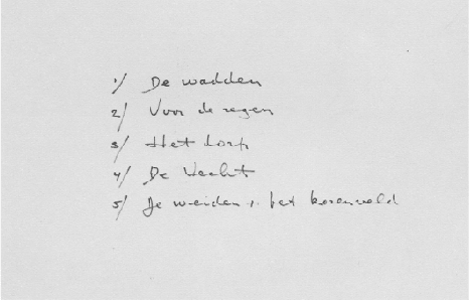 1/ De wadden
2/ Voor de regen
3/ Het dorp
4/ De Vecht
5/ De weiden + het korenveld